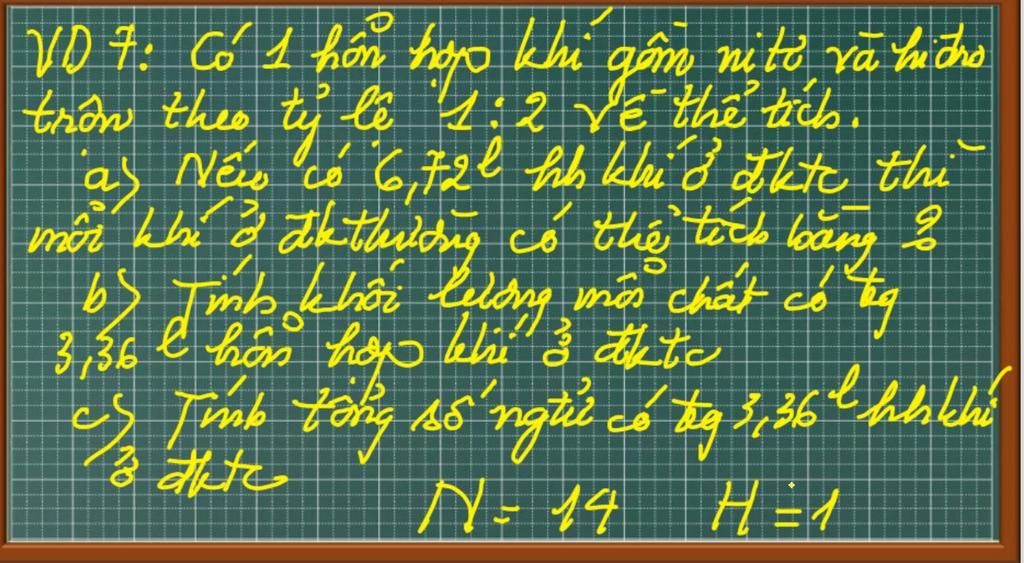 VD 7: Có 1 hỗn hợp khí gồm nitơ và hiđro
trộn theo tỷ lệ 1:2 về thể tích.
a) Nếu có 6,72l hh khí ở đktc thì
mỗi khí ở đk thường có thể tích bằng ?
b) Tính khối lượng mỗi chất có tg
3,36 l hỗn hợp khí ở đktc
c) Tính tổng số ngtử có tg 3,36l hh khí
ở đktc
N = 14 H = 1